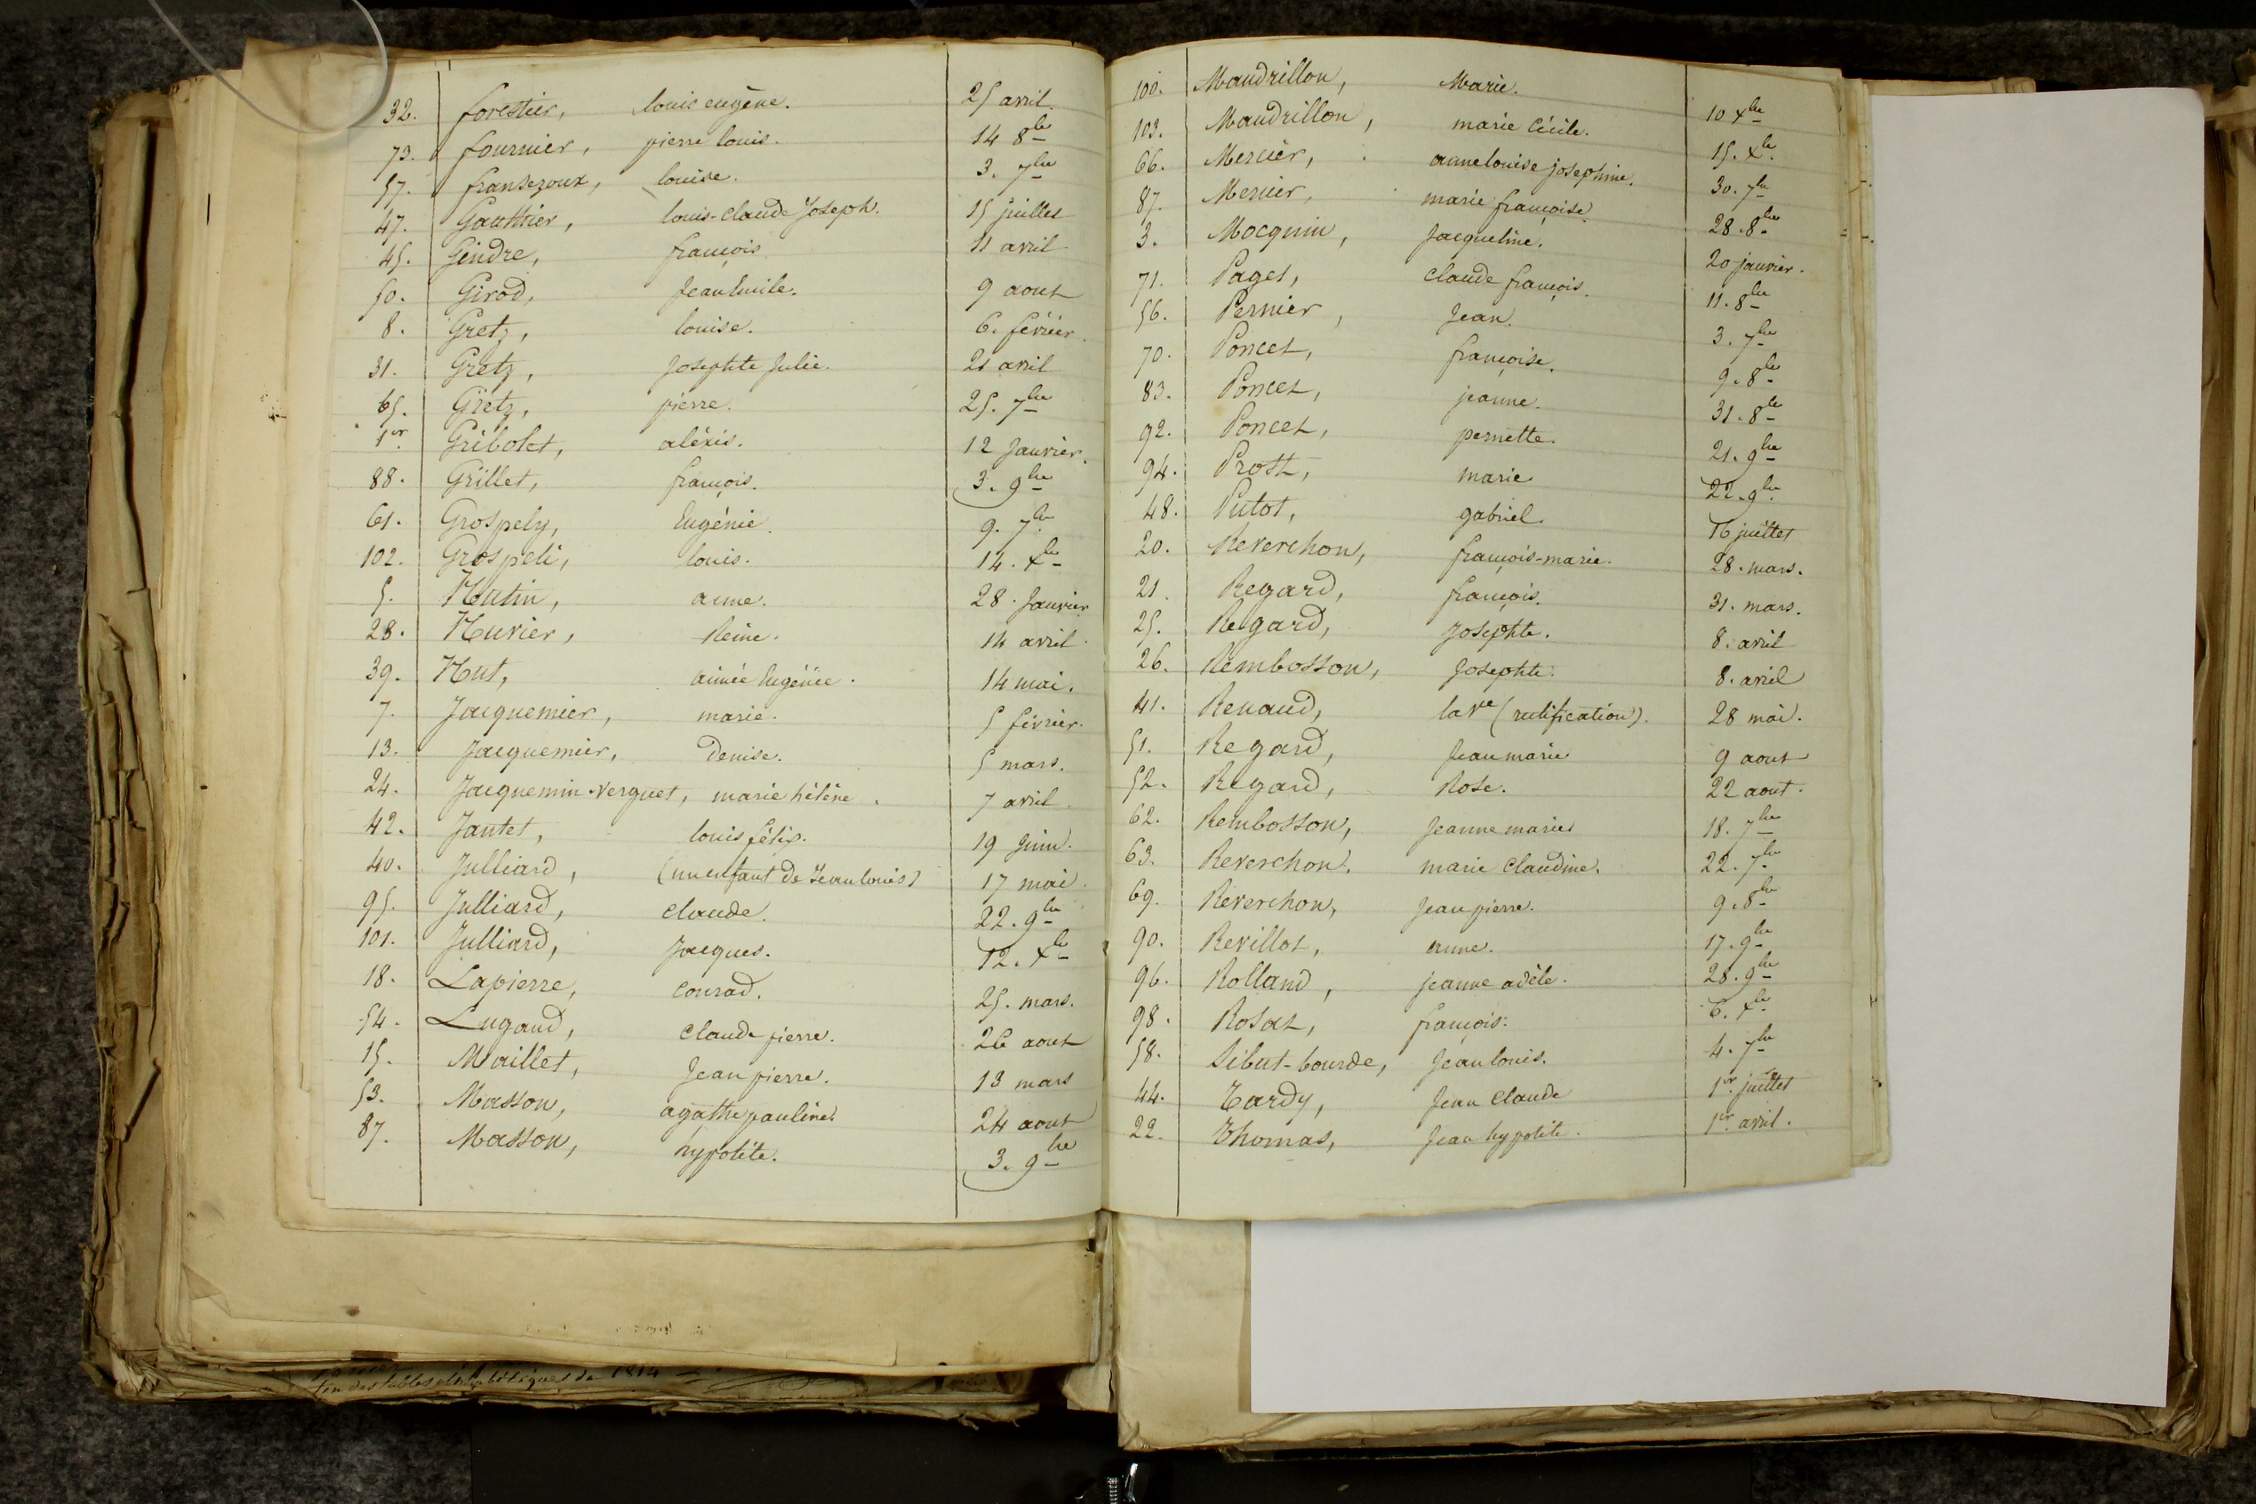 32. forestier, louis eugène. 25 avril.
73. fournier, pierre louis. 14 8bre
57. fransezoux, louise. 3. 7bre
47. Gauthier, louis-claude Joseph. 15 juillet
45. Gindre, françois 11 avril
50. Girod, Jean 9 aout
8. Gretz, louise. 6. février.
31. Gretz, Josephte Julie. 21 avril
65. Gretz, pierre. 25. 7bre
1er. Gribolet, aléxis. 12 Janvier.
88. Grillet, françois. 3. 9bre
61. Grospely, Eugénie. 9. 7bre
102. Grospeli, louis. 14. xbre
5. Hutin, anne. 28. Janvier
28. Huvier, Reine. 14 avril.
39. Hut, aimée Eugénie. 14 mai.
7. Jacquemier, marie. 5 février.
13. Jacquemier, Denise. 5 mars.
24. Jacquemin-verguet, marie hélène. 7 avril.
42. Jantet, louis félix. 19 Juin.
40. Julliard, (un enfant de Jean louis) 17 mai.
95. Julliard, claude. 22. 9bre
101. Julliard, Jacques. 12. xbre
18. Lapierre, Conrad. 25. mars.
54. Lugand, Claude pierre. 26 aout
15. Maillet, Jean pierre. 13 mars
53. Masson, agathe pauline. 24 aout
87. Masson, hypolite. 3. 9bre
100. Maudrillon, Marie. 10 xbre
103. Maudrillon, marie Cécile. 15. xbre
66. Mercier, anne louise josephine. 30. 7bre
87. Mercier, marie françoise. 28. 8bre
3. Mocquin, Jacqueline. 20 janvier.
71. Paget, Claude françois. 11. 8bre
56. Pernier, Jean. 3. 7bre
70. Poncet, françoise. 9. 8bre
83. Poncet, jeanne. 31. 8bre
92. Poncet, pernette. 21. 9bre
94. Prost, marie 22. 9bre
48. Putot, gabriel. 16 juillet
20. Reverchon, françois-marie. 28. mars.
21. Regard, françois. 31. mars.
25. Regard, Josephte. 8. avril
26. Rembosson, Josephte. 8. avril
41. Renaud, la ve (rectification). 28 mai.
51. Regard, Jean marie 9 aout
52. Regard, Rose. 22 aout.
62. Rembosson, Jeanne marie 18. 7bre
63. Reverchon, marie Claudine. 22. 7bre
69. Reverchon, Jean pierre. 9. 8bre
90. Revillot, anne. 17. 9bre
96. Rolland, jeanne adèle. 28. 9bre
98. Rosat, françois. 6. xbre
58. Sibut-bourde, Jean louis. 4. 7bre
44. Tardy, Jean Claude 1er juillet
22. Thomas, Jean hypolite. 1er avril.
fin des tables alphabétiques de 1814